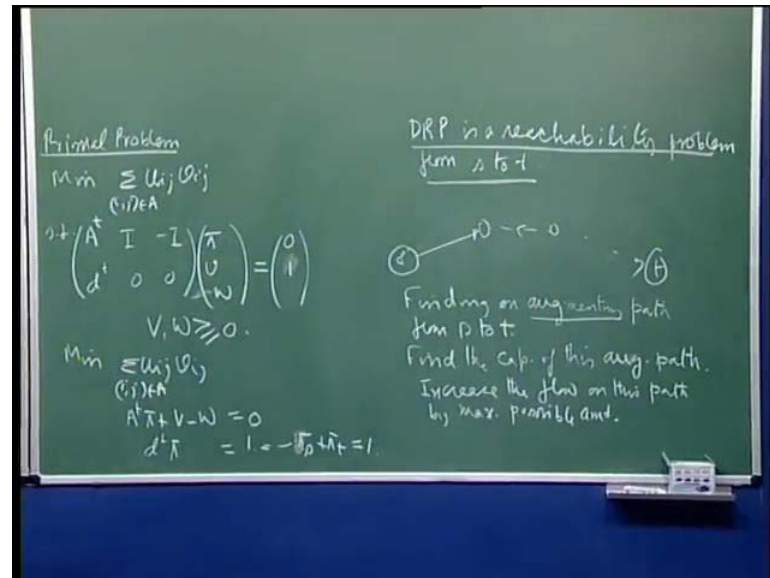 Primal Problem
Min Σ Uij Vij
(i,j)∈A
s.t. (Aᵗ I -I) (π) = (0)
(dᵗ 0 0) (V) (1)
(W)
V, W ≥ 0.
Min Σ Uij Vij
(i,j)∈A
Aᵗπ + V - W = 0
dᵗπ = 1 = -πs + πt = 1.
DRP is a reachability problem
from s to t
s
t
Finding an augmenting path
from s to t.
Find the cap. of this aug. path.
Increase the flow on this path
by max. possible amt.